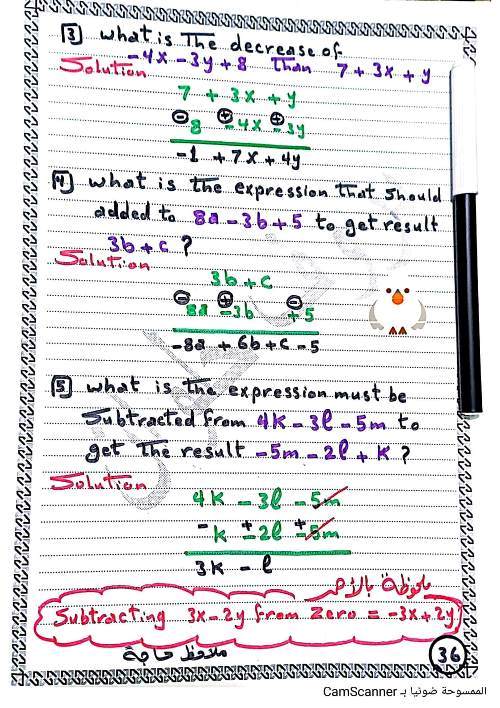 [3] what is The decrease of
-4x -3y + 8 Than 7 + 3x + y
Solution
7 + 3x + y
⊖8 ⊕-4x ⊕-3y
-1 +7x + 4y
[4] what is the expression that should
added to 8a - 3b + 5 to get result
3b + c ?
Solution
3b + c
⊖8a ⊕-3b ⊖+5
-8a + 6b + c - 5
[5] what is the expression must be
Subtracted from 4k - 3l - 5m to
get The result -5m - 2l + k ?
Solution
4k - 3l - 5m
-k +-2l +-5m
3k - l
ملحوظة بالأحمر
Subtracting 3x - 2y from Zero = -3x + 2y
36
الممسوحة ضوئيا بـ CamScanner